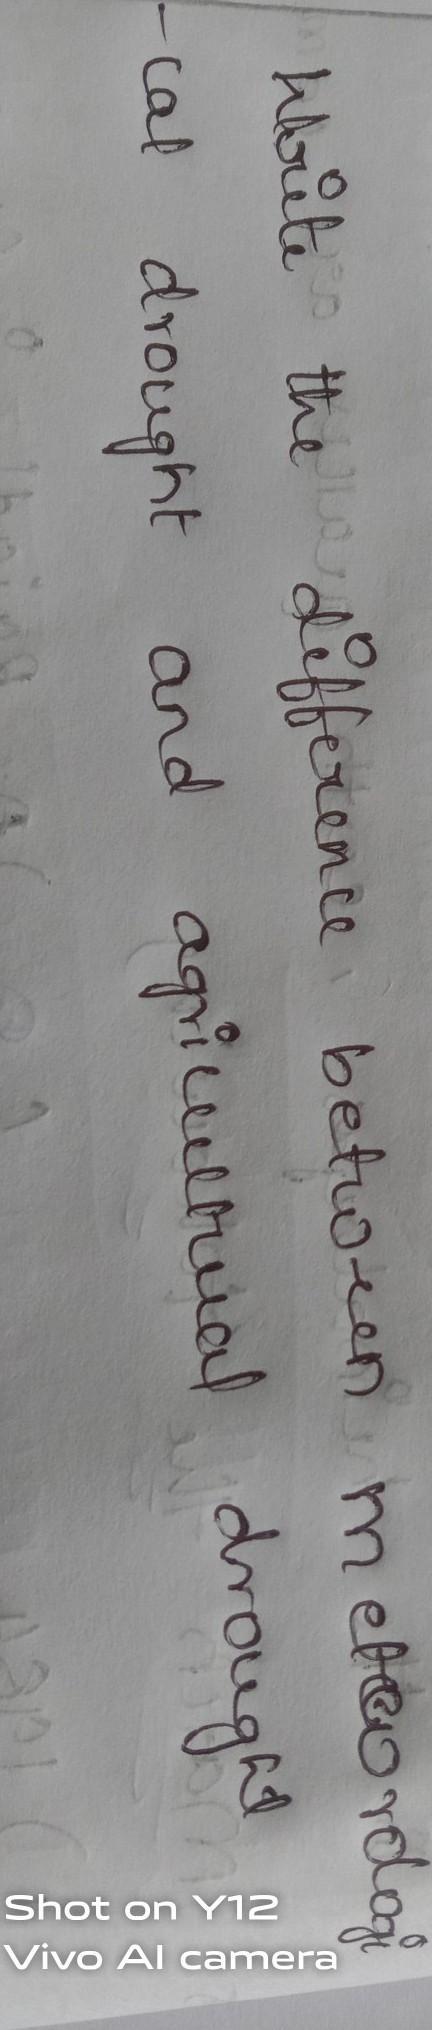 Write the difference between meteorologi
-cal drought and agricultural drought
Shot on Y12
Vivo AI camera